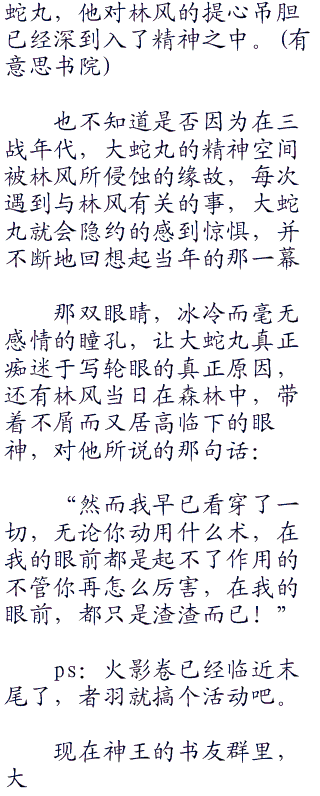 蛇丸，他对林风的提心吊胆
已经深到入了精神之中。(有
意思书院)
也不知道是否因为在三
战年代，大蛇丸的精神空间
被林风所侵蚀的缘故，每次
遇到与林风有关的事，大蛇
丸就会隐约的感到惊惧，并
不断地回想起当年的那一幕
那双眼睛，冰冷而毫无
感情的瞳孔，让大蛇丸真正
痴迷于写轮眼的真正原因，
还有林风当日在森林中，带
着不屑而又居高临下的眼
神，对他所说的那句话：
“然而我早已看穿了一
切，无论你动用什么术，在
我的眼前都是起不了作用的
不管你再怎么厉害，在我的
眼前，都只是渣渣而已！”
ps：火影卷已经临近末
尾了，者羽就搞个活动吧。
现在神王的书友群里，
大